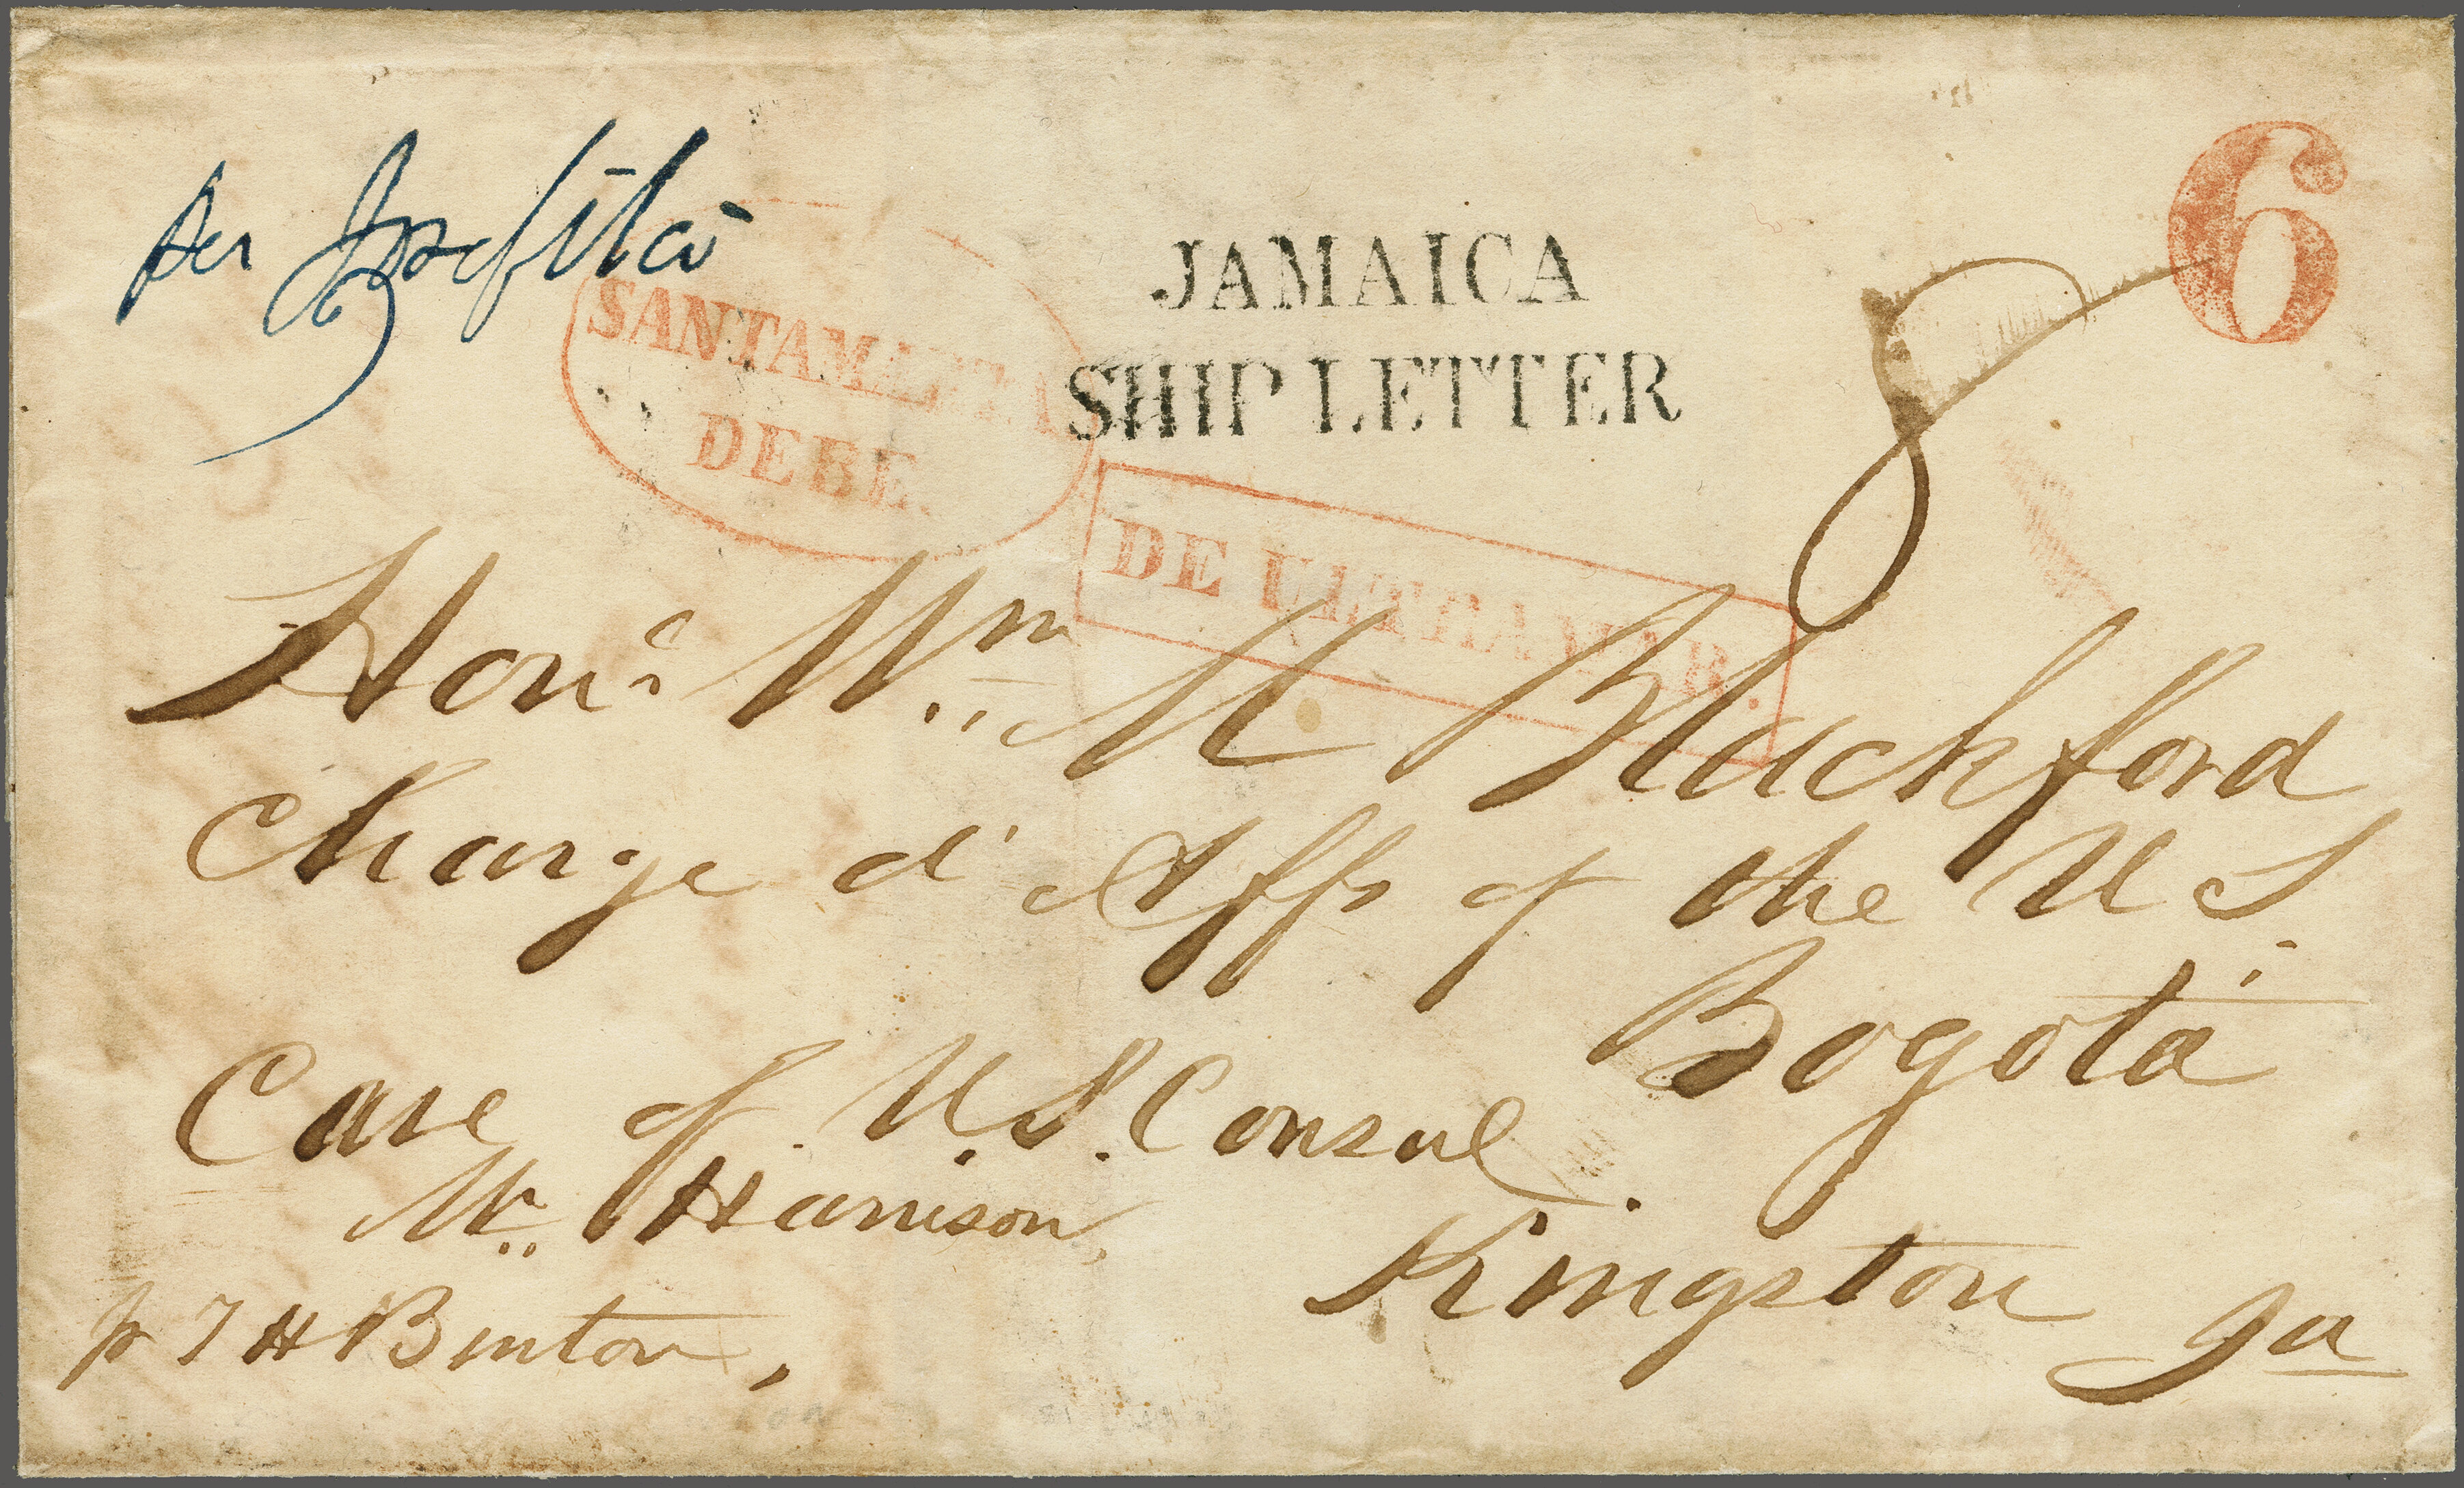 per Josefita
JAMAICA
SHIP LETTER
6
8
SANTAMARTA
DEBE.
DE ULTRAMAR.
Hone. Wm. M Blackford
Charge d' Affs of the U S.
Bogotá
Care of U.S. Consul.
Mr. Harrison,
Kingston Ja
pr T H Benton,